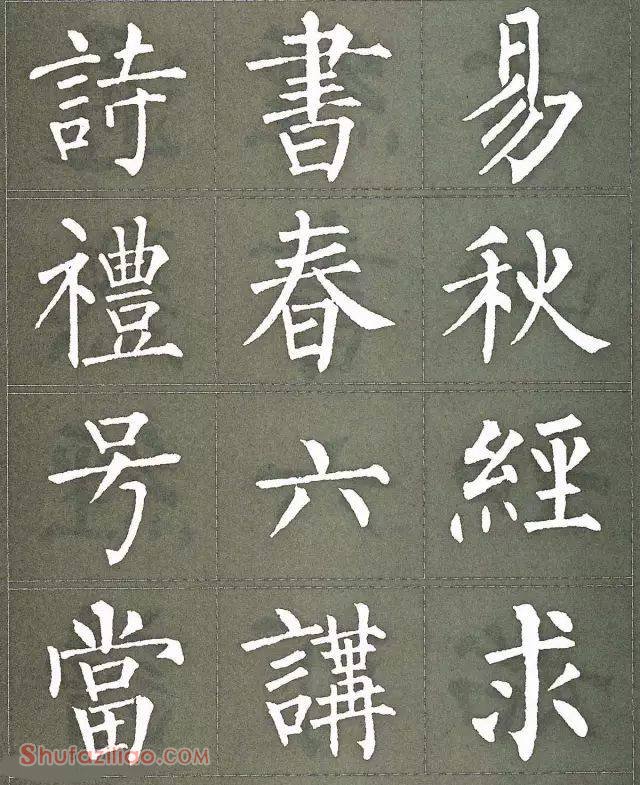 詩書易
禮春秋
号六經
當講求
Shufaziliao.com